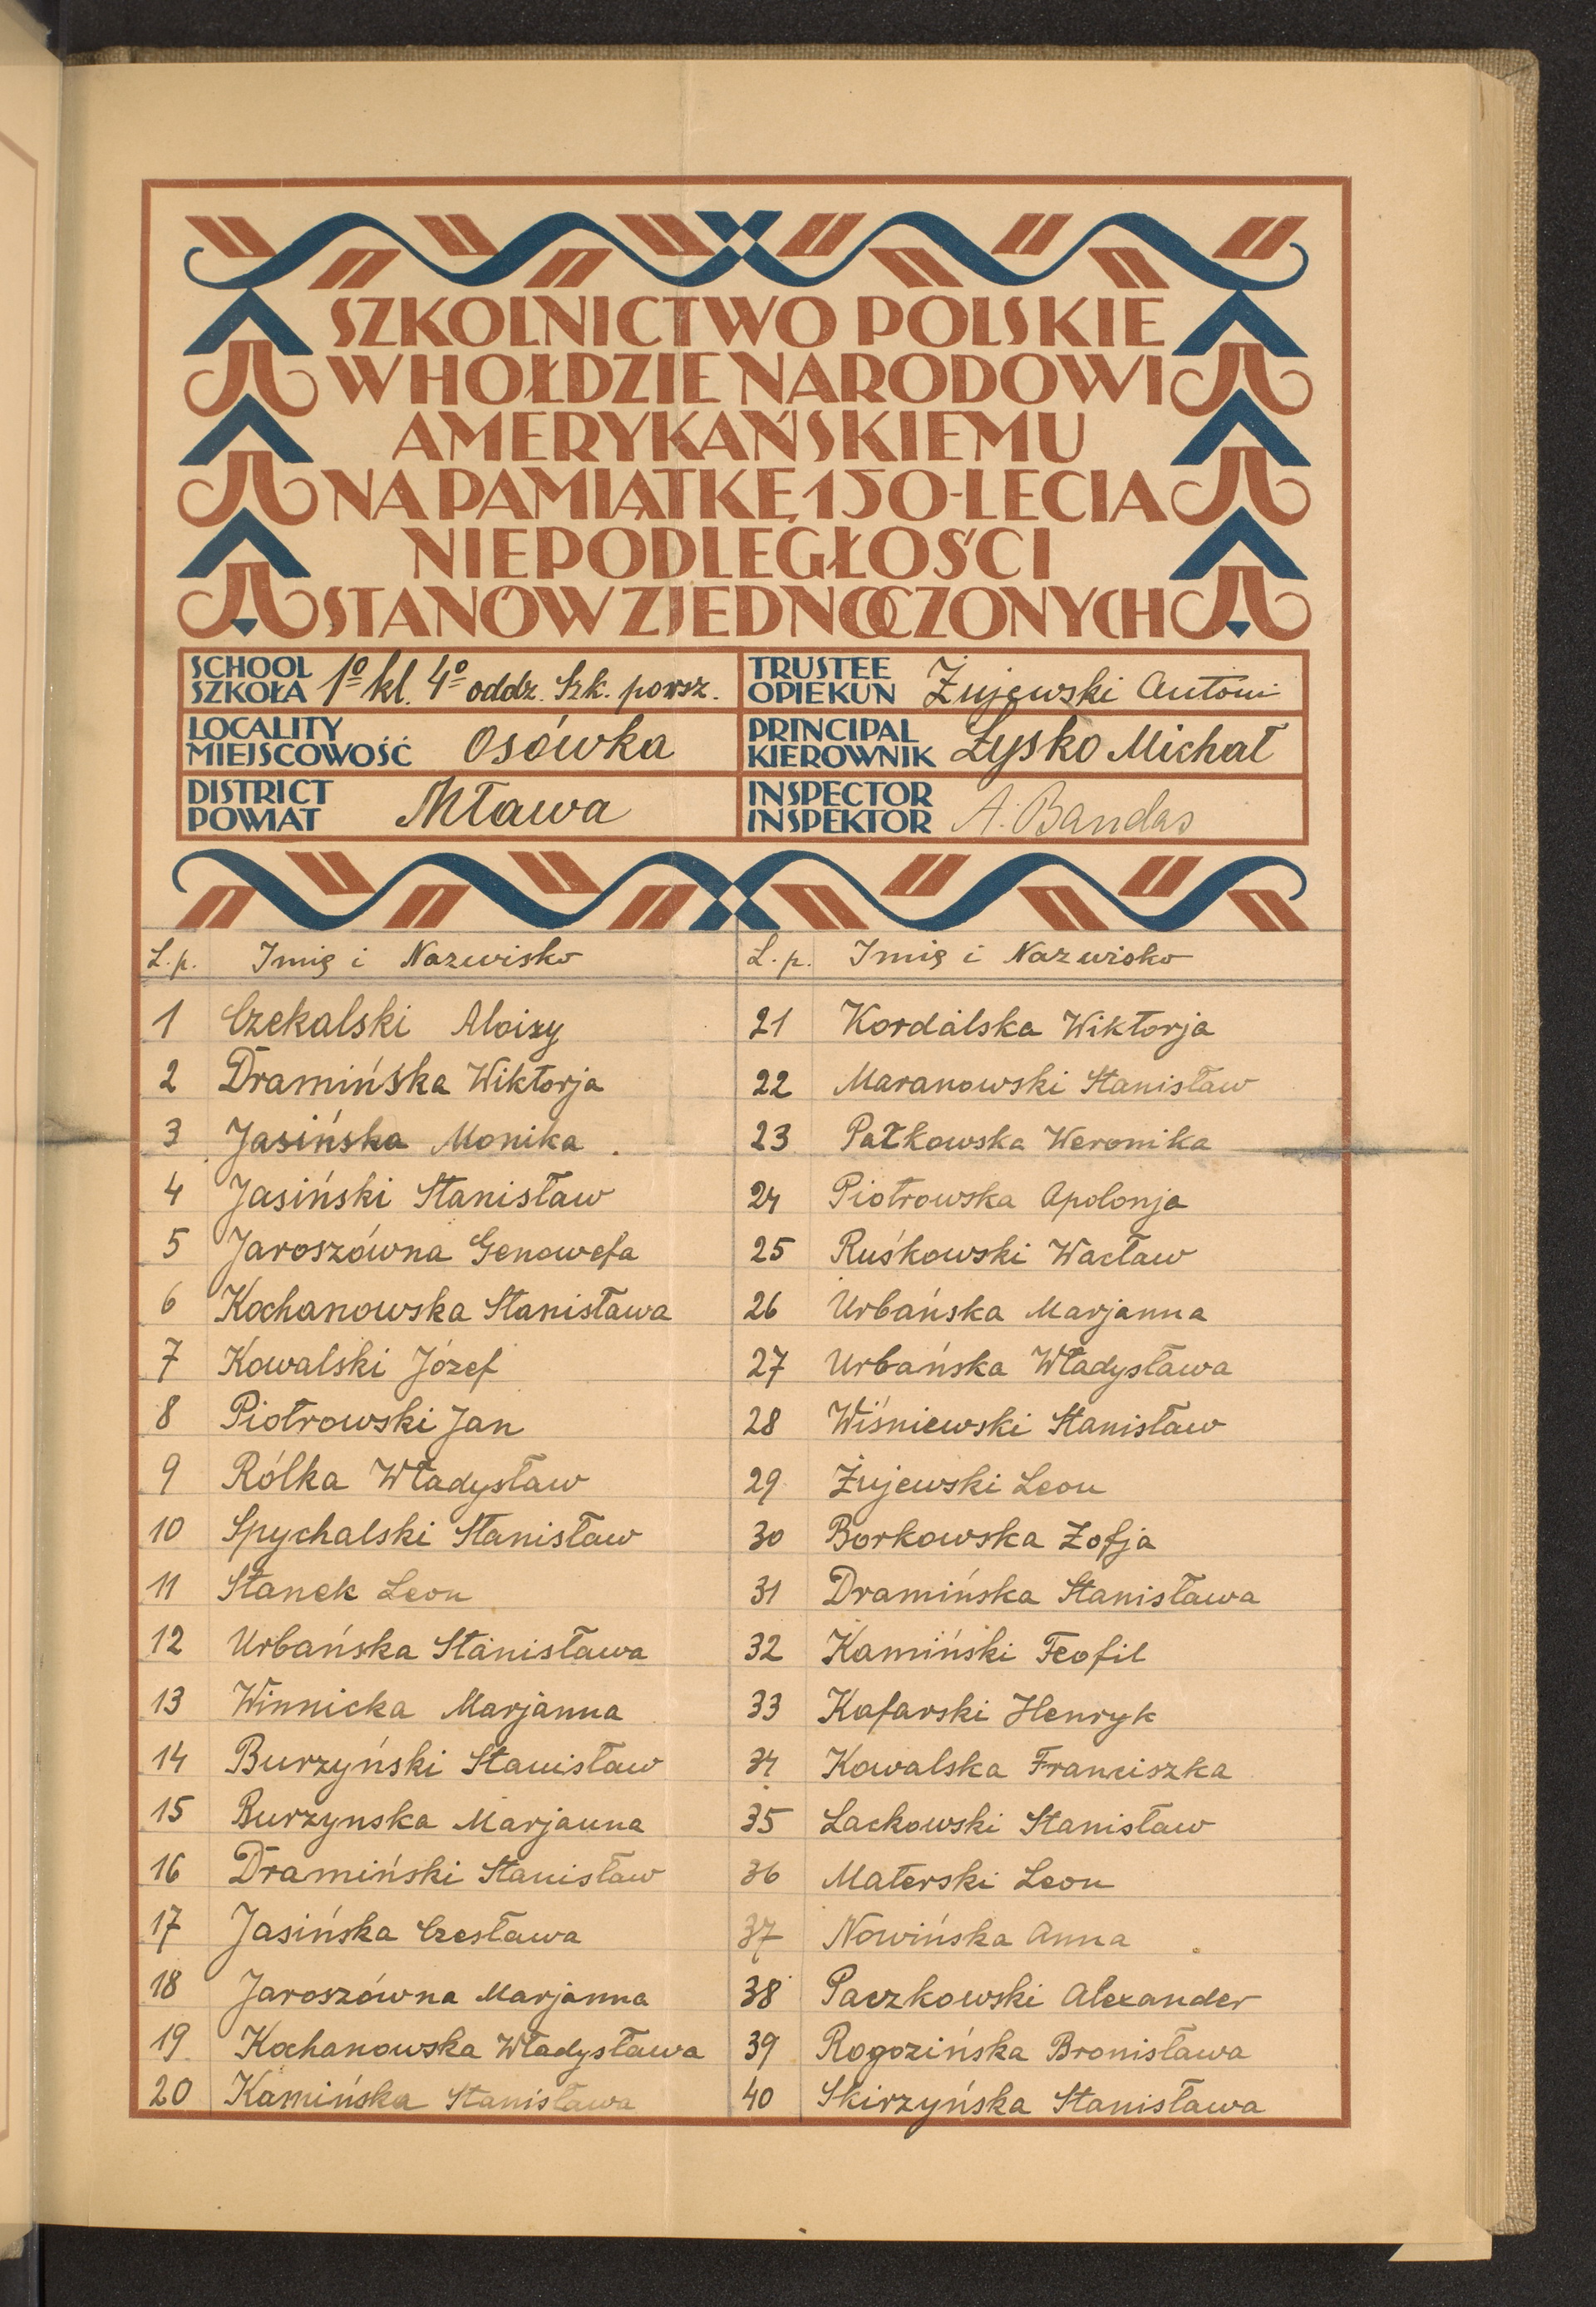 SZKOLNICTWO POLSKIE
W HOŁDZIE NARODOWI
AMERYKAŃSKIEMU
NA PAMIĄTKĘ 150-LECIA
NIEPODLEGŁOŚCI
STANÓW ZJEDNOCZONYCH
SCHOOL
SZKOŁA 1º kl. 4º oddz. Szk. powsz.
TRUSTEE
OPIEKUN Żujewski Antoni
LOCALITY
MIEJSCOWOŚĆ Osówka
PRINCIPAL
KIEROWNIK Łysko Michał
DISTRICT
POWIAT Mława
INSPECTOR
INSPEKTOR A. Bandas
L.p. Imię i Nazwisko
1 Czekalski Aloizy
2 Dramińska Wiktorja
3 Jasińska Monika
4 Jasiński Stanisław
5 Jaroszówna Genowefa
6 Kochanowska Stanisława
7 Kowalski Józef
8 Piotrowski Jan
9 Rólka Władysław
10 Spychalski Stanisław
11 Stanek Leon
12 Urbańska Stanisława
13 Winnicka Marjanna
14 Burzyński Stanisław
15 Burzynska Marjanna
16 Dramiński Stanisław
17 Jasińska Czesława
18 Jaroszówna Marjanna
19 Kochanowska Władysława
20 Kamińska Stanisława
L.p. Imię i Nazwisko
21 Kordalska Wiktorja
22 Maranowski Stanisław
23 Pałkowska Weronika
24 Piotrowska Apolonja
25 Ruśkowski Wacław
26 Urbańska Marjanna
27 Urbańska Władysława
28 Wiśniewski Stanisław
29 Żujewski Leon
30 Borkowska Zofja
31 Dramińska Stanisława
32 Kamiński Teofil
33 Kafarski Henryk
34 Kowalska Franciszka
35 Lackowski Stanisław
36 Materski Leon
37 Nowińska Anna
38 Paczkowski Alexander
39 Rogozińska Bronisława
40 Skirzyńska Stanisława